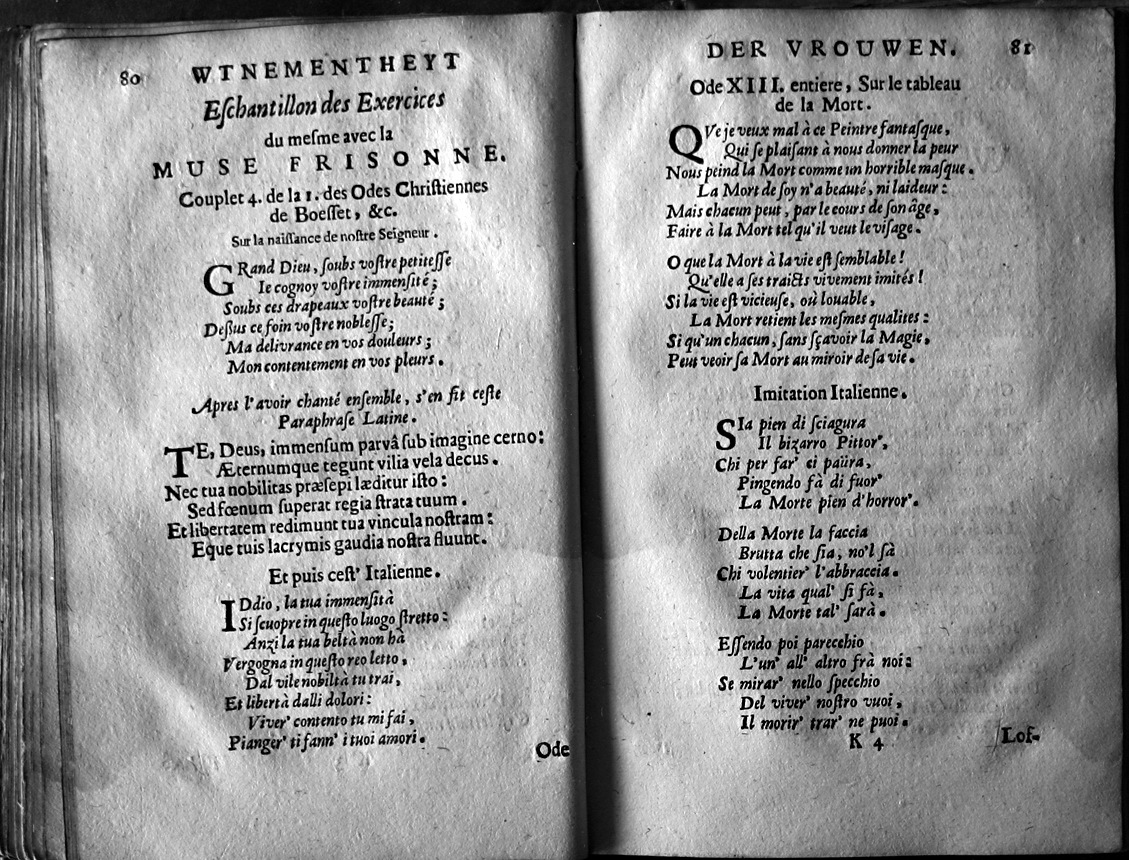 80 WTNEMENTHEYT
Eſchantillon des Exercices
du meſme avec la
MUSE FRISONNE.
Couplet 4. de la 1. des Odes Chriſtiennes
de Boeſſet, &c.
Sur la naiſſance de noſtre Seigneur.
GRand Dieu, ſoubs voſtre petiteſſe
Ie cognoy voſtre immenſité;
Soubs ces drapeaux voſtre beauté;
Deſſus ce foin voſtre nobleſſe;
Ma delivrance en vos douleurs;
Mon contentement en vos pleurs.
Apres l'avoir chanté enſemble, s'en fit ceſte
Paraphraſe Latine.
TE, Deus, immenſum parvâ ſub imagine cerno:
Æternumque tegunt vilia vela decus.
Nec tua nobilitas præſepi læditur iſto:
Sed fœnum ſuperat regia ſtrata tuum.
Et libertatem redimunt tua vincula noſtram:
Eque tuis lacrymis gaudia noſtra fluunt.
Et puis ceſt' Italienne.
IDdio, la tua immenſità
Si ſcuopre in queſto luogo ſtretto:
Anzi la tua beltà non hà
Vergogna in queſto reo letto,
Dal vile nobiltà tu trai,
Et libertà dalli dolori:
Viver' contento tu mi fai,
Pianger' ti fann' i tuoi amori.
Ode
DER VROUWEN. 81
Ode XIII. entiere, Sur le tableau
de la Mort.
QVe je veux mal à ce Peintre fantaſque,
Qui ſe plaiſant à nous donner la peur
Nous peind la Mort comme un horrible maſque.
La Mort de ſoy n'a beauté, ni laideur:
Mais chacun peut, par le cours de ſon âge,
Faire à la Mort tel qu'il veut le viſage.
O que la Mort à la vie eſt ſemblable!
Qu'elle a ſes traicts vivement imités!
Si la vie eſt vicieuſe, où louable,
La Mort retient les meſmes qualites:
Si qu'un chacun, ſans ſçavoir la Magie,
Peut veoir ſa Mort au miroir de ſa vie.
Imitation Italienne.
SIa pien di ſciagura
Il bizarro Pittor',
Chi per far' ci paüra,
Pingendo fà di fuor'
La Morte pien d'horror'.
Della Morte la faccia
Brutta che ſia, no'l ſà
Chi volentier' l'abbraccia.
La vita qual' ſi fà,
La Morte tal' ſarà.
Eſſendo poi parecchio
L'un' all' altro frà noi:
Se mirar' nello ſpecchio
Del viver' noſtro vuoi,
Il morir' trar' ne puoi.
K 4
Lof-